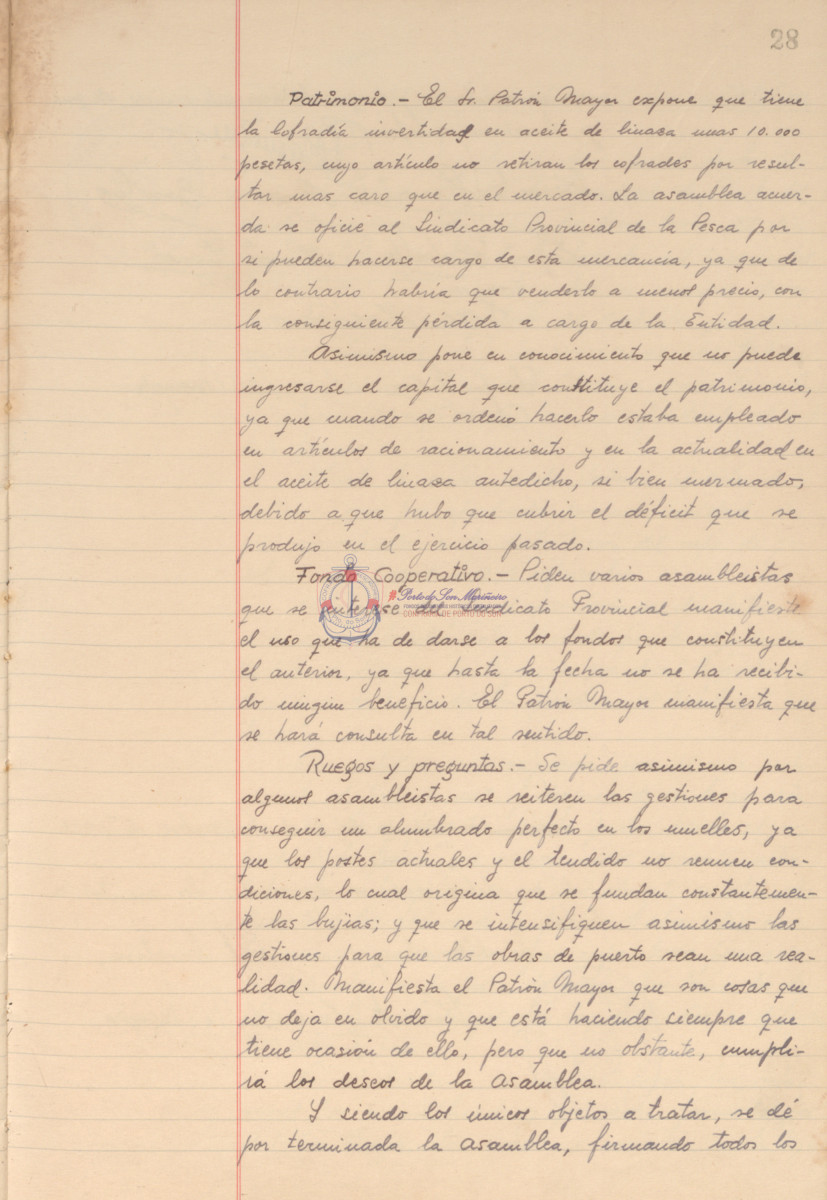 28
Patrimonio.- El Sr. Patrón Mayor expone que tiene
la Cofradía invertidas en aceite de linaza unas 10.000
pesetas, cuyo artículo no retiran los cofrades por resul-
tar mas caro que en el mercado. La asamblea acuer-
da se oficie al Sindicato Provincial de la Pesca por
si pueden hacerse cargo de esta mercancia, ya que de
lo contrario habría que venderlo a menos precio, con
la consiguiente pérdida a cargo de la Entidad.
Asimismo pone en conocimiento que no puede
ingresarse el capital que constituye el patrimonio,
ya que cuando se ordenó hacerlo estaba empleado
en artículos de racionamiento y en la actualidad en
el aceite de linaza antedicho, si bien mermado,
debido a que hubo que cubrir el déficit que se
produjo en el ejercicio pasado.
Fondo Cooperativo.- Piden varios asambleistas
que se interese del Sindicato Provincial manifieste
el uso que ha de darse a los fondos que constituyen
el anterior, ya que hasta la fecha no se ha recibi-
do ningún beneficio. El Patrón Mayor manifiesta que
se hará consulta en tal sentido.
Ruegos y preguntas.- Se pide asimismo por
algunos asambleistas se reiteren las gestiones para
conseguir un alumbrado perfecto en los muelles, ya
que los postes actuales y el tendido no reunen con-
diciones, lo cual origina que se fundan constantemen-
te las bujias; y que se intensifiquen asimismo las
gestiones para que las obras de puerto sean una rea-
lidad. Manifiesta el Patrón Mayor que son cosas que
no deja en olvido y que está haciendo siempre que
tiene ocasión de ello, pero que no obstante, cumpli-
rá los deseos de la Asamblea.
Y siendo los únicos objetos a tratar, se dé
por terminada la Asamblea, firmando todos los
Porto de Son Mariñeiro